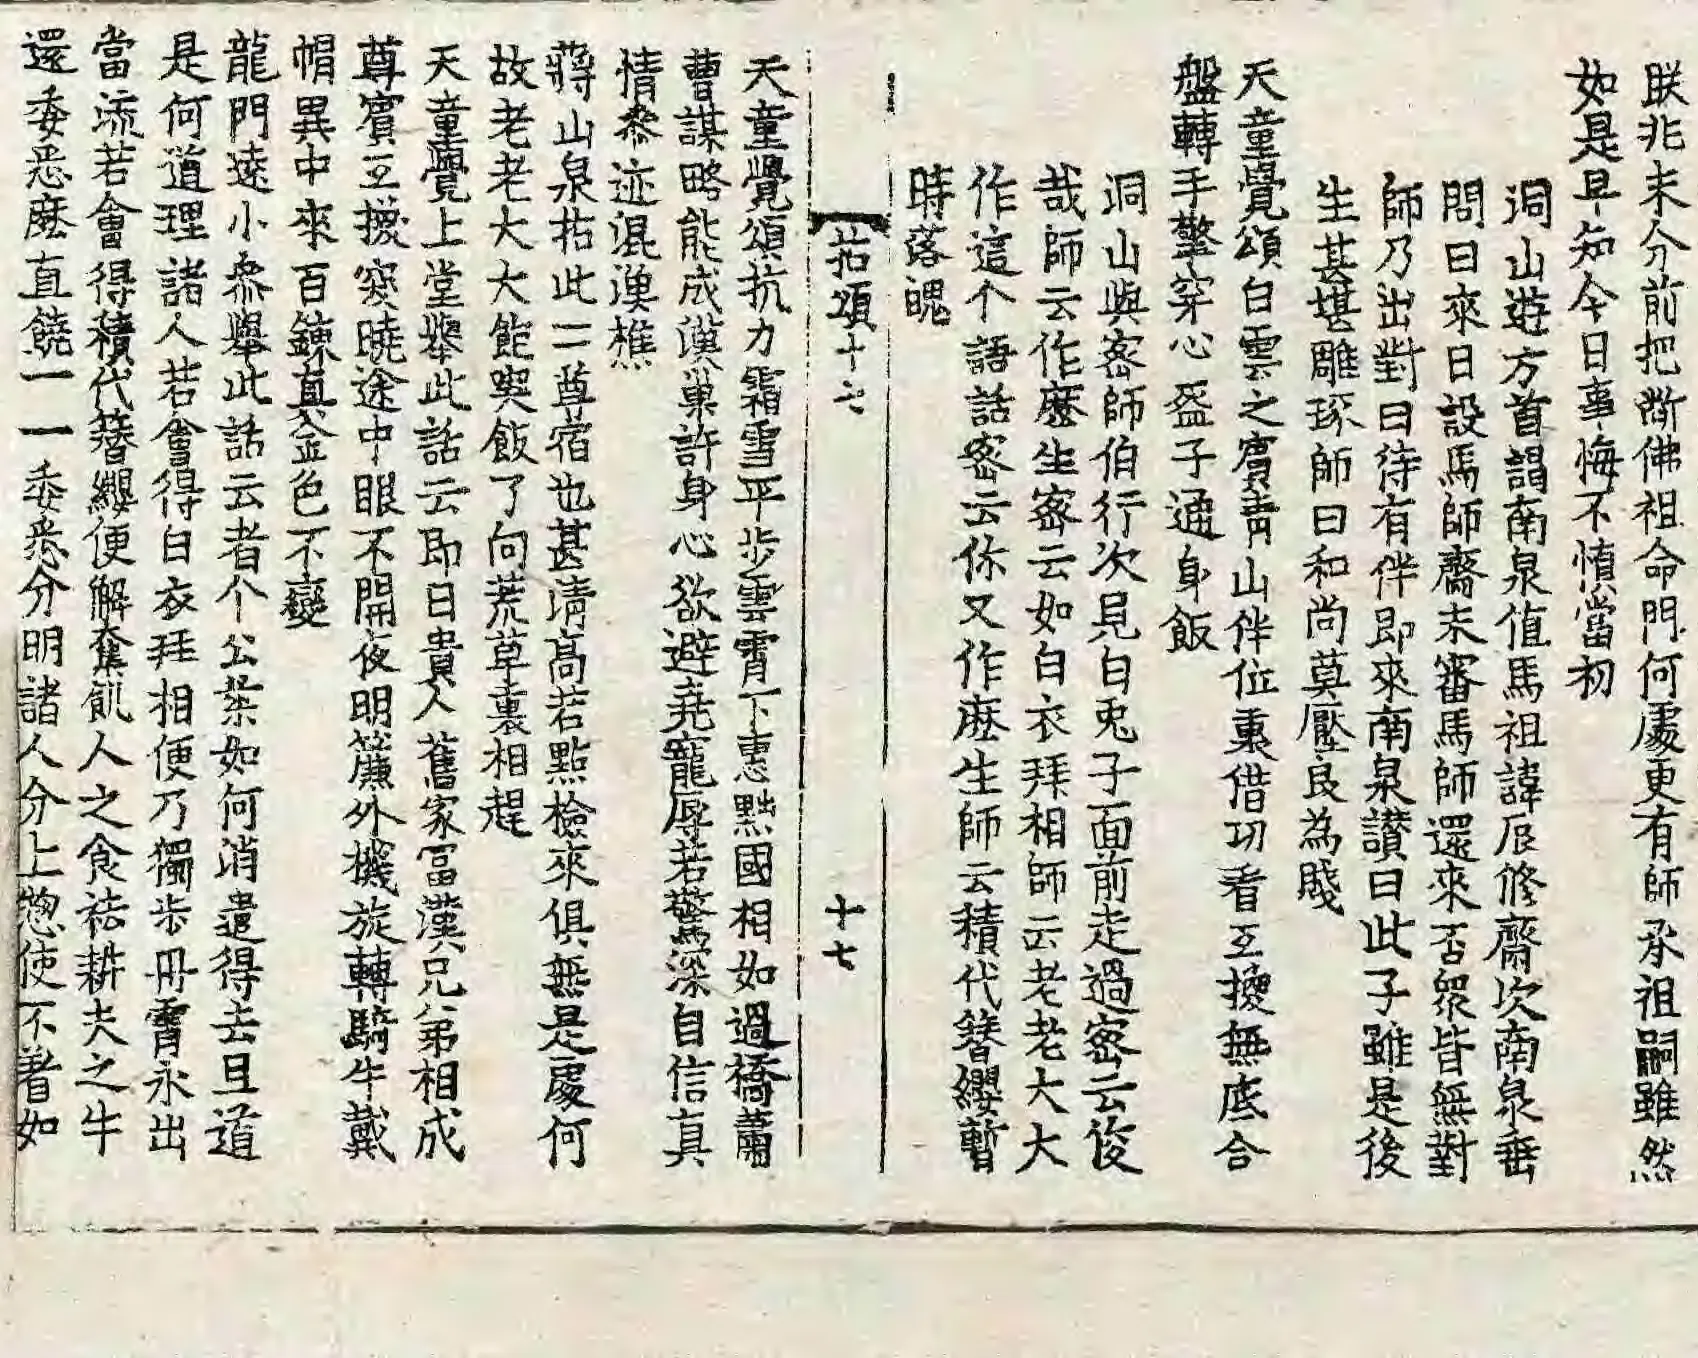 朕兆未分前把斷佛祖命門何處更有師承祖嗣雖然
如是早知今日事悔不慎當初
洞山遊方首謁南泉值馬祖諱辰修齋次南泉垂
問曰來日設馬師齋未審馬師還來否眾皆無對
師乃出對曰待有伴即來南泉讃曰此子雖是後
生甚堪雕琢師曰和尚莫壓良為賤
天童覺頌白雲之賓青山伴位裏借功看互換無底合
盤轉手擎穿心盌子通身飯
洞山與密師伯行次見白兎子面前走過密云俊
哉師云作麽生密云如白衣拜相師云老老大大
作這个語話密云你又作麽生師云積代簪纓暫
時落魄
拈頌十六
十七
天童覺頌抗力霜雪平步雲霄下惠黜國相如過橋蕭
曹謀略能成漢巢許身心欲避堯寵辱若驚深自信真
情叅迹混漁樵
蔣山泉拈此二尊宿也甚淸高若點檢來俱無是處何
故老老大大飽喫飯了向荒草裏相趕
天童覺上堂舉此話云即日貴人舊家冨漢兄弟相成
尊賓互換窔曉途中眼不開夜明簾外機旋轉騎牛戴
帽異中來百鍊真金色不變
龍門遠小叅舉此話云者个公案如何消遣得去且道
是何道理諸人若會得白衣拜相便乃獨步丹霄永出
當流若會得積代簪纓便解奪飢人之食祛耕夫之牛
還委悉麽直饒一一委悉分明諸人分上惣使不著如